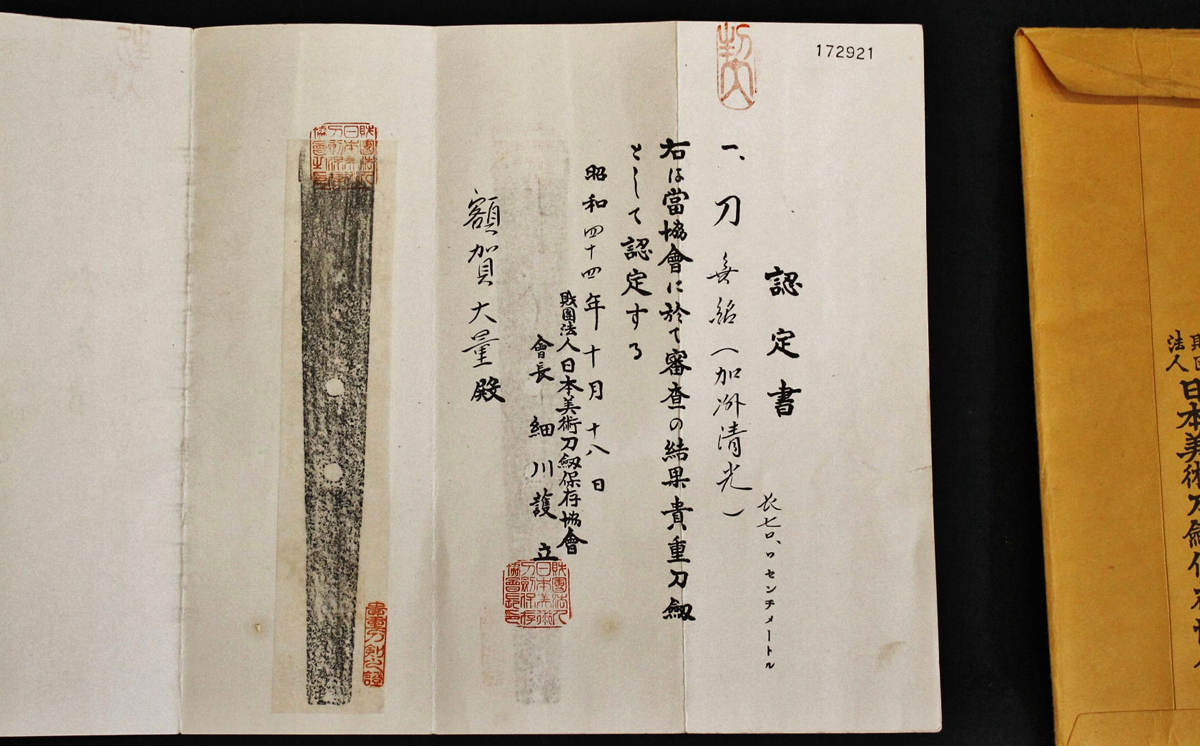 172921
認定書
一、刀 無銘(加州清光)
長七〇、〇センチメートル
右は當協會に於て審査の結果貴重刀劔
として認定する
昭和四十四年十月十八日
財團法人日本美術刀劔保存協會
會長 細川護立
額賀大量殿
財團法人
日本美術
刀劍保存
協會長印
貴重刀剣之證
財団
法人
日本美術刀劔保存協會